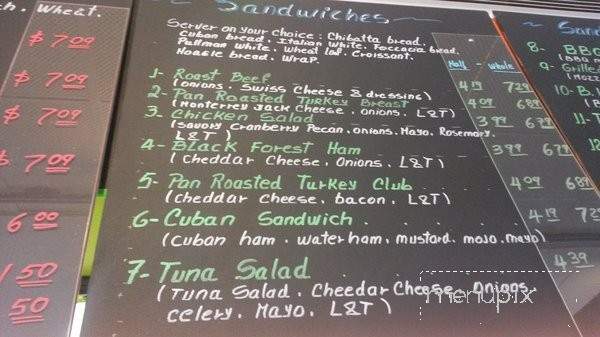 Sandwiches
Server on your choice: Chibatta bread.
Cuban bread. Italian White. Foccacia bread.
Pullman White. Wheat loaf. Croissant.
Hoagie bread. Wrap.
Half - Whole
1- Roast Beef
(Onions. Swiss Cheese & dressing)
2- Pan Roasted Turkey Breast
(Monterrey Jack Cheese. onions. L&T)
3- Chicken Salad
(Savory Cranberry Pecan. Onions. Mayo. Rosemary.
L&T)
4- Black Forest Ham
(Cheddar Cheese. Onions. L&T)
5- Pan Roasted Turkey Club
(Cheddar Cheese. bacon. L&T)
6- Cuban Sandwich.
(Cuban ham. water ham. mustard. mojo. mayo)
7- Tuna Salad
(Tuna Salad. Cheedar Cheese. Onions.
Celery. Mayo. L&T)
4 19
4 09
3 99
3 99
4 09
4 19
4.39
Wheat.
$ 7 09
$ 7 09
$ 7 09
$ 7 09
6 00
1 50
50
8- BBQ
9- Grilled
menupix